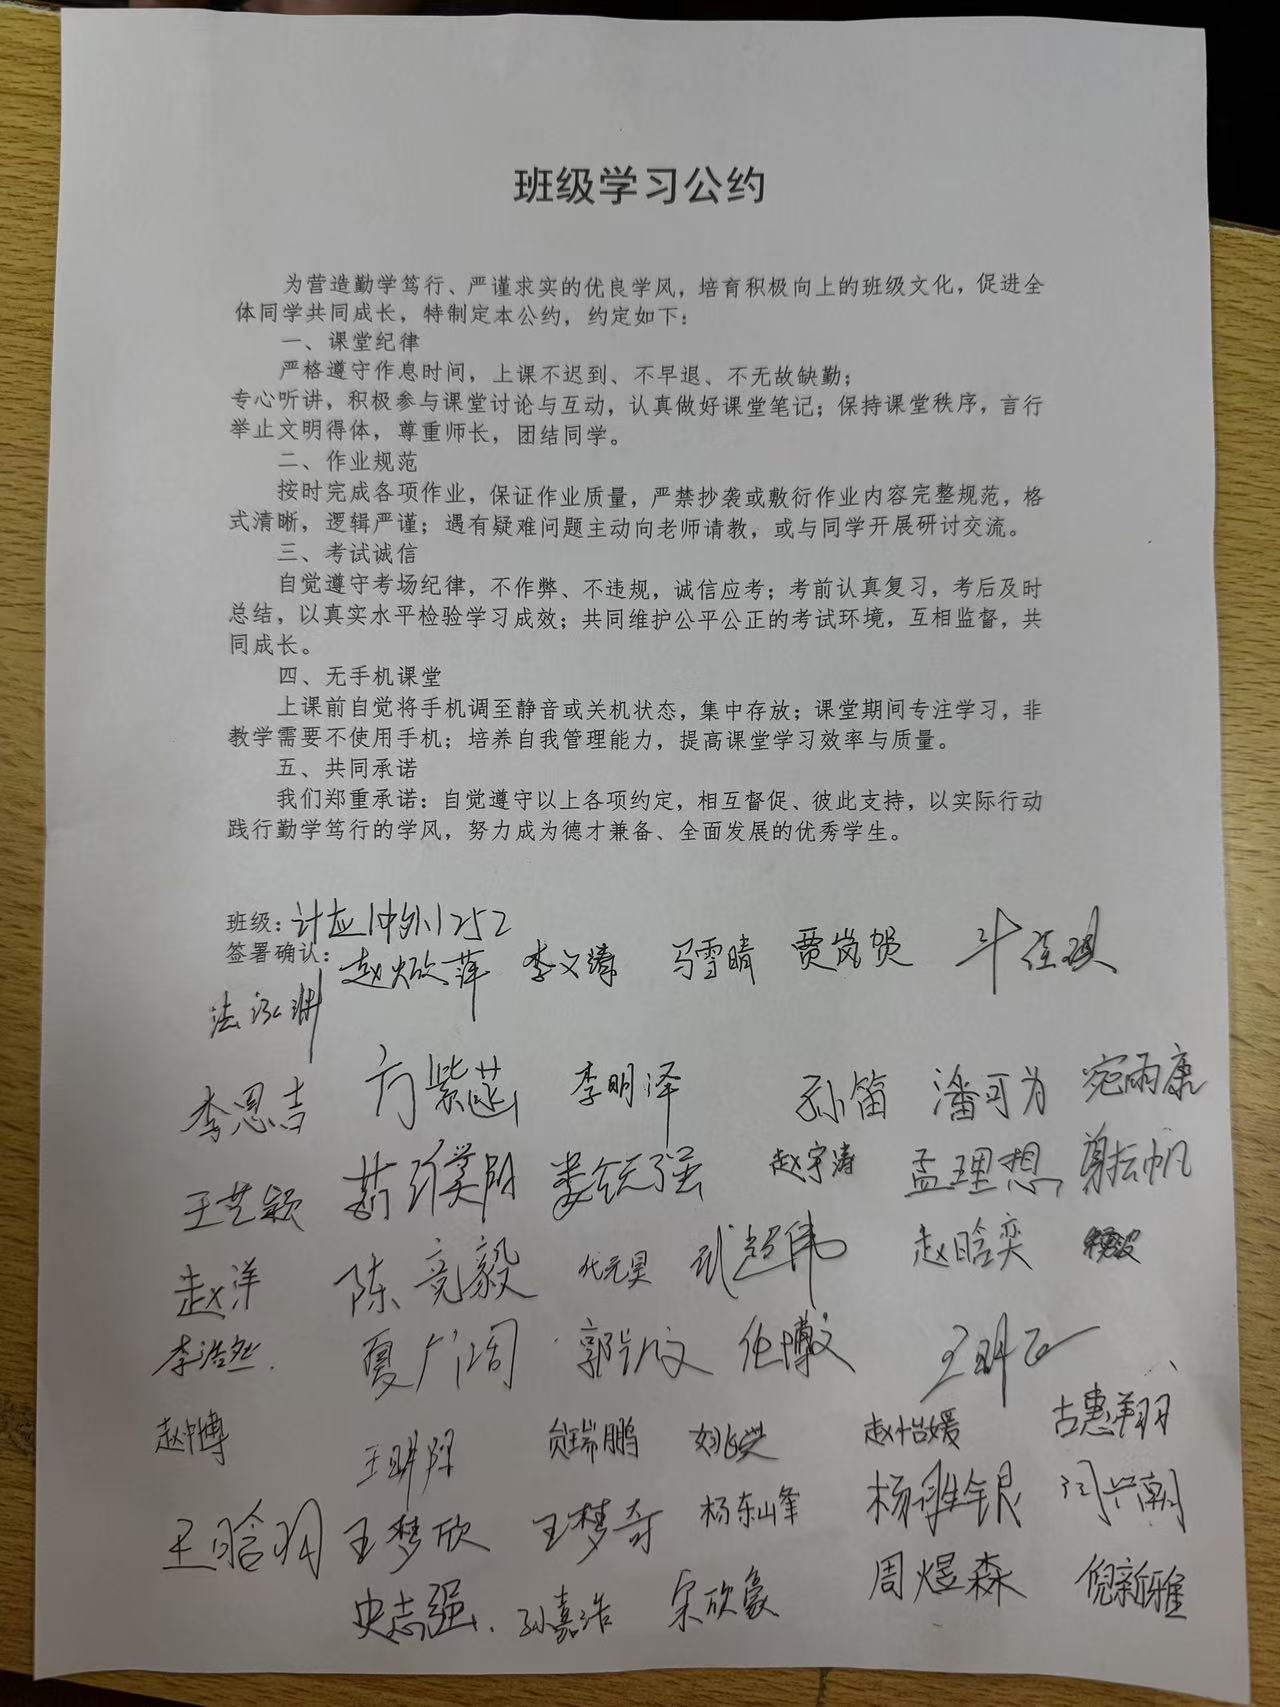 班级学习公约
为营造勤学笃行、严谨求实的优良学风，培育积极向上的班级文化，促进全
体同学共同成长，特制定本公约，约定如下：
一、课堂纪律
严格遵守作息时间，上课不迟到、不早退、不无故缺勤；
专心听讲，积极参与课堂讨论与互动，认真做好课堂笔记；保持课堂秩序，言行
举止文明得体，尊重师长，团结同学。
二、作业规范
按时完成各项作业，保证作业质量，严禁抄袭或敷衍作业内容完整规范，格
式清晰，逻辑严谨；遇有疑难问题主动向老师请教，或与同学开展研讨交流。
三、考试诚信
自觉遵守考场纪律，不作弊、不违规，诚信应考；考前认真复习，考后及时
总结，以真实水平检验学习成效；共同维护公平公正的考试环境，互相监督，共
同成长。
四、无手机课堂
上课前自觉将手机调至静音或关机状态，集中存放；课堂期间专注学习，非
教学需要不使用手机；培养自我管理能力，提高课堂学习效率与质量。
五、共同承诺
我们郑重承诺：自觉遵守以上各项约定，相互督促、彼此支持，以实际行动
践行勤学笃行的学风，努力成为德才兼备、全面发展的优秀学生。
班级：计应冲外1252
签署确认： 马雪晴 贾岚贺
李恩吉 李明泽 孙笛 潘可为 宛雨康
王艺颖 娄锐强 赵宇涛 孟理想
赵洋 陈竞毅 代元昊 武超伟 赵晗奕
李浩然 夏广阔 郭凯文 任博文
赵中博 贠瑞鹏 赵怡媛 古惠翔
王晗羽 王梦欣 王梦奇 杨东山峰 杨胜银 闫兴朝
史志强 孙嘉浩 宋欣豪 周煜森 倪新雅